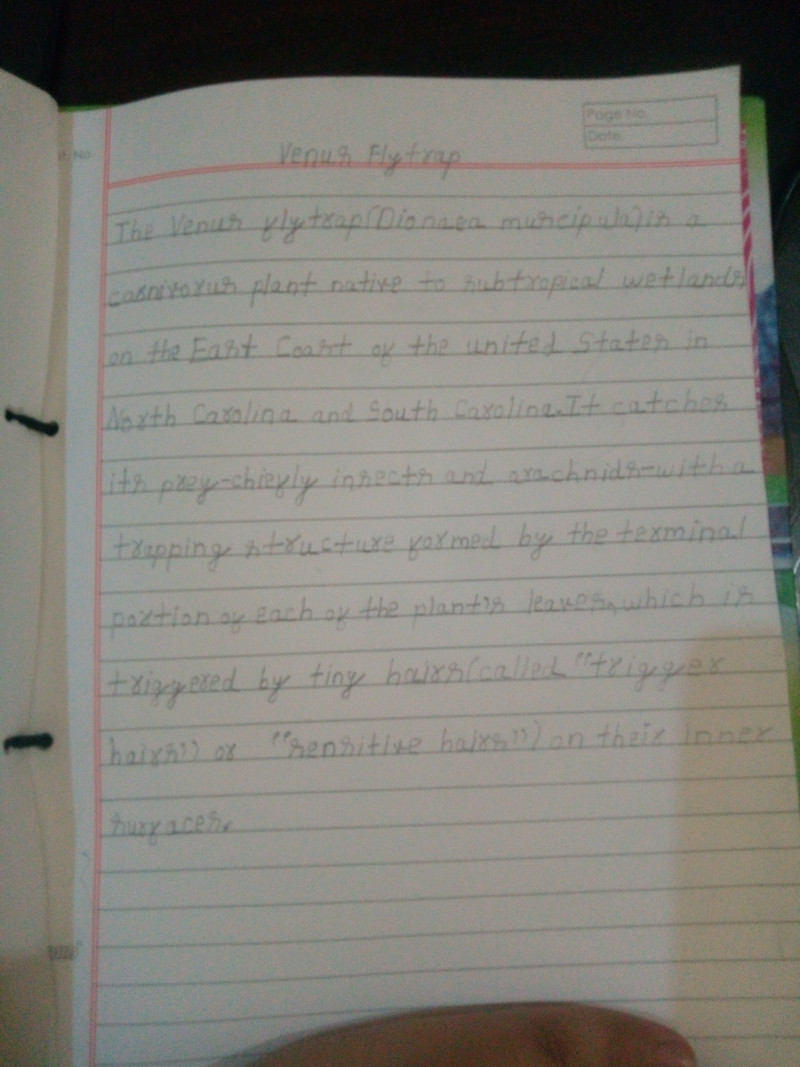 Page No.
Date.
Venus Flytrap
The Venus flytrap(Dionaea muscipula)is a
carnivorus plant native to subtropical wetlands
on the East Coast of the united States in
North Carolina and South Carolina.It catches
its prey-chiefly insects and arachnids-with a
trapping structure formed by the terminal
portion of each of the plant's leaves,which is
triggered by tiny hairs(called "trigger
hairs") or "sensitive hairs") on their inner
surfaces.